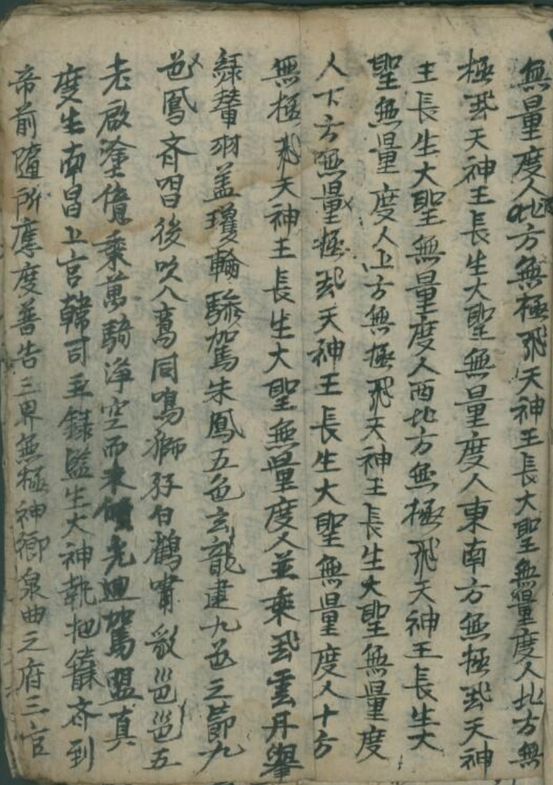 無量度人北方無極飛天神王長大聖無量度人北方無
極飛天神王長生大聖無量度人東南方無極飛天神
王長生大聖無量度人西北方無極飛天神王長生大
聖無量度人上方無極飛天神王長生大聖無量度
人下方無量極飛天神王長生大聖無量度人十方
無極飛天神王長生大聖無量度人並乘飛雲丹轝
綠輦羽盖瓊輪驂駕朱鳳五色玄龍建九色之節九
色鳳齊唱後吹八鸞同鳴獅子白鶴嘯歌邕邕五
老啟塗億乘萬騎浮空而來傾光迴駕盟真
度生南昌上宮韓司主錄監生大神執把籙齊到
帝前隨所應度普告三界無極神鄉泉曲之府三官